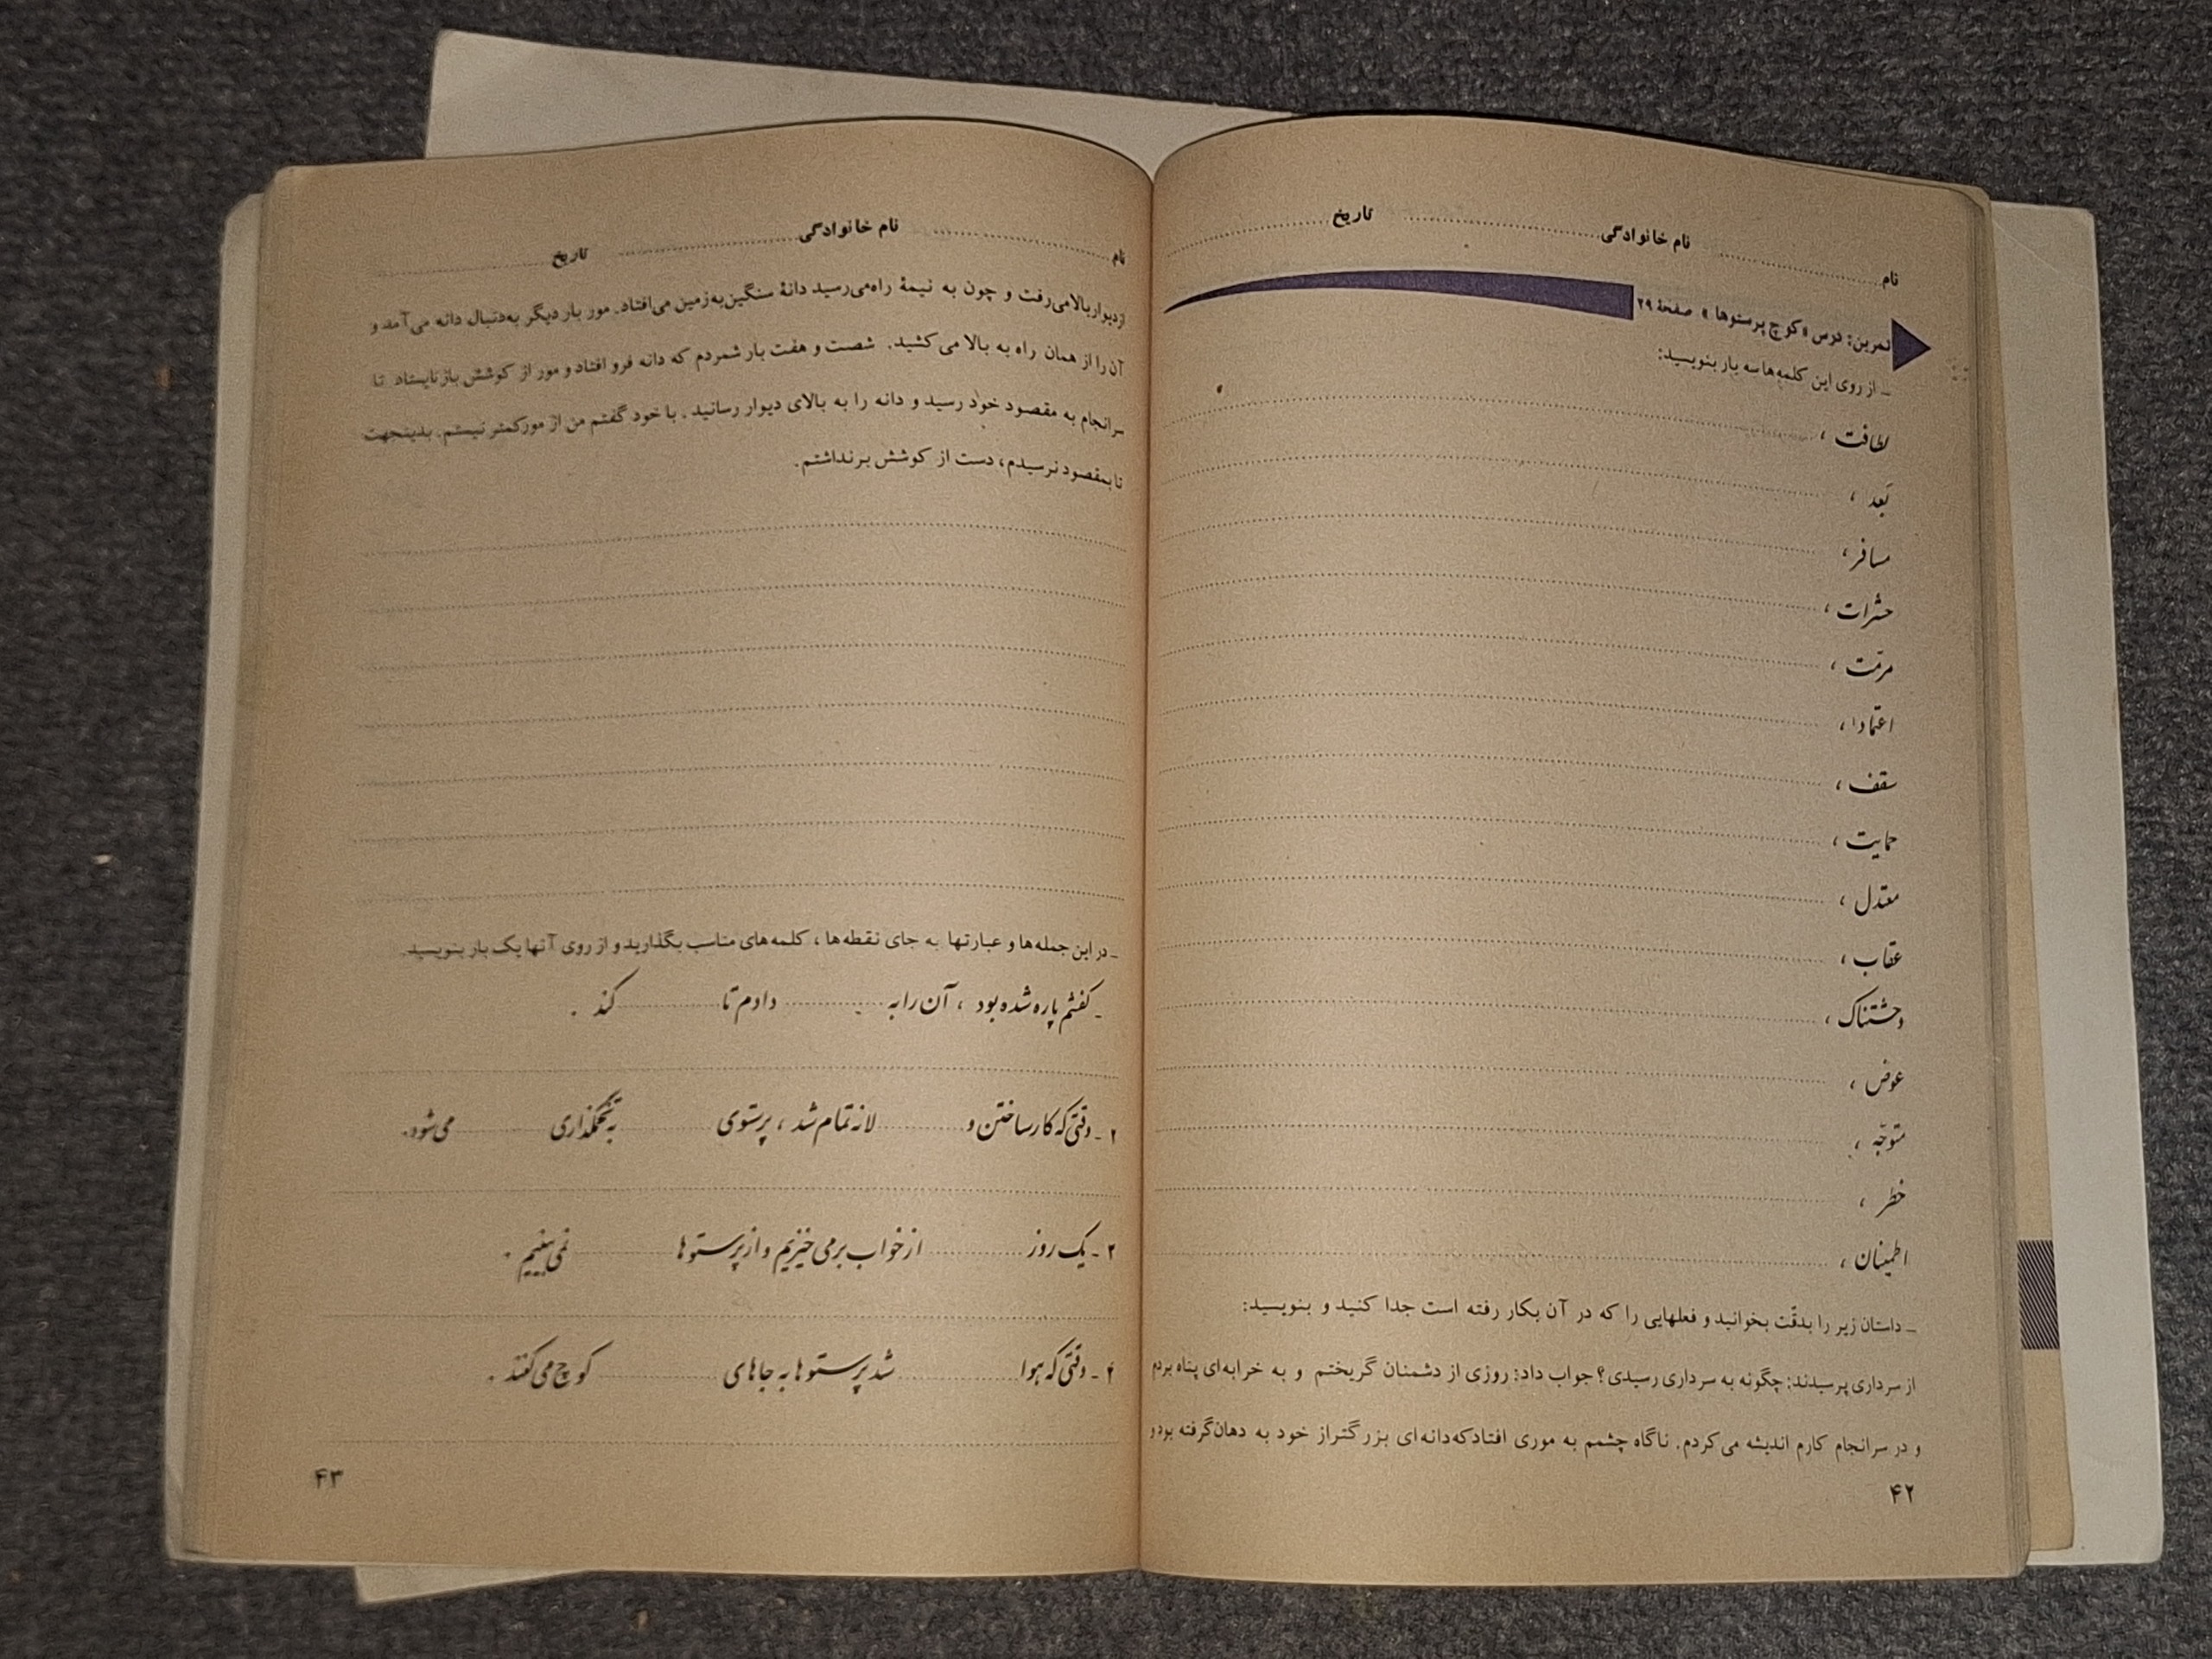 نام نام خانوادگی تاریخ
تمرین: درس «کوچ پرستوها» صفحهٔ ۲۹
ـ از روی این کلمه‌ها سه بار بنویسید:
لطافت ،
بَعد ،
مسافر ،
حشرات ،
مرمّت ،
اعتماد ،
سقف ،
حمایت ،
معتدل ،
عقاب ،
وحشتناک ،
عوض ،
متوجّه ،
خطر ،
اطمینان ،
ـ داستان زیر را بدقّت بخوانید و فعلهایی را که در آن بکار رفته است جدا کنید و بنویسید:
از سرداری پرسیدند: چگونه به سرداری رسیدی؟ جواب داد: روزی از دشمنان گریختم و به خرابه‌ای پناه بردم
و در سرانجام کارم اندیشه می‌کردم. ناگاه چشمم به موری افتاد که دانه‌ای بزرگتر از خود به دهان گرفته بود و
۴۲
نام نام خانوادگی تاریخ
از دیوار بالا می‌رفت و چون به نیمهٔ راه می‌رسید دانهٔ سنگین به زمین می‌افتاد. مور بار دیگر به‌دنبال دانه می‌آمد و
آن را از همان راه به بالا می‌کشید. شصت و هفت بار شمردم که دانه فرو افتاد و مور از کوشش باز نایستاد تا
سرانجام به مقصود خود رسید و دانه را به بالای دیوار رسانید. با خود گفتم من از مور کمتر نیستم. بدینجهت
تا بمقصود نرسیدم، دست از کوشش برنداشتم.
ـ در این جمله‌ها و عبارتها به جای نقطه‌ها ، کلمه‌های مناسب بگذارید و از روی آنها یک بار بنویسید.
ـ کفشم پاره شده بود ، آن را به .......... دادم تا .......... کند .
۲ ـ وقتی که کار ساختن و .......... لانه تمام شد ، پرستوی .......... به تخمگذاری .......... می‌شود.
۳ ـ یک روز .......... از خواب برمی‌خیزیم و از پرستوها .......... نمی‌بینیم .
۴ ـ وقتی که هوا .......... شد پرستوها به جاهای .......... کوچ می‌کنند .
۴۳